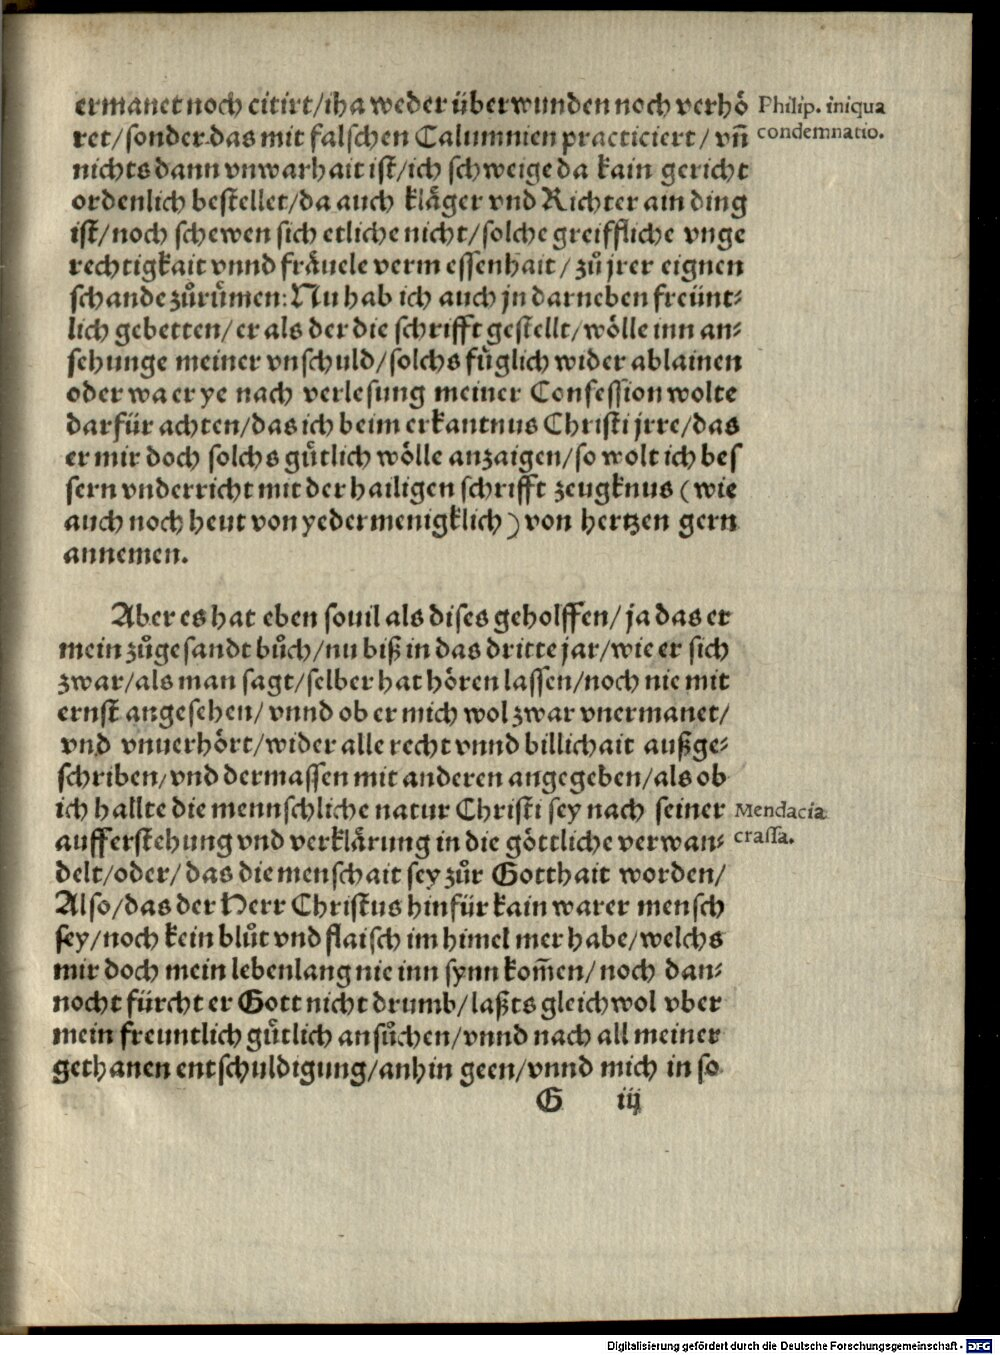 ermanet noch citirt/iha weder überwunden noch verhö
ret/sonder das mit falschen Calumnien practiciert/ vñ
nichts dann vnwarhait ist/ich schweige da kain gericht
ordenlich bestellet/da auch kläger vnd Richter ain ding
ist/noch schewen sich etliche nicht/solche greiffliche vnge
rechtigkait vnnd fräuele vermessenhait/ zů jrer eignen
schande zůrůmen: Nu hab ich auch jn darneben freünt-
lich gebetten/er als der die schrifft gestellt/wölle inn an-
sehunge meiner vnschuld/solchs füglich wider ablainen
oder wa er ye nach verlesung meiner Confession wolte
darfür achten/das ich beim erkantnus Christi jrre/das
er mir doch solchs gůtlich wölle anzaigen/so wolt ich bes
sern vnderricht mit der hailigen schrifft zeugknus (wie
auch noch heut von yedermenigklich) von hertzen gern
annemen.
Aber es hat eben souil als dises geholffen/ ja das er
mein zůgesandt bůch/nu biß in das dritte jar/wie er sich
zwar/als man sagt/selber hat hören lassen/noch nie mit
ernst angesehen/ vnnd ob er mich wol zwar vnermanet/
vnd vnuerhört/wider alle recht vnnd billichait außge-
schriben/vnd dermassen mit anderen angegeben/als ob
ich hallte die mennschliche natur Christi sey nach seiner
aufferstehung vnd verklärung in die göttliche verwan-
delt/oder/ das die menschait sey zůr Gotthait worden/
Also/das der Herr Christus hinfür kain warer mensch
sey/noch kein blůt vnd flaisch im himel mer habe/welchs
mir doch mein lebenlang nie inn synn kom̃en/noch dan-
nocht fürcht er Gott nicht drumb/laßts gleichwol vber
mein freuntlich gůtlich ansůchen/vnnd nach all meiner
gethanen entschuldigung/anhin geen/vnnd mich in so
G iij
Philip. iniqua
condemnatio.
Mendacia
crassa.
Digitalisierung gefördert durch die Deutsche Forschungsgemeinschaft - DFG